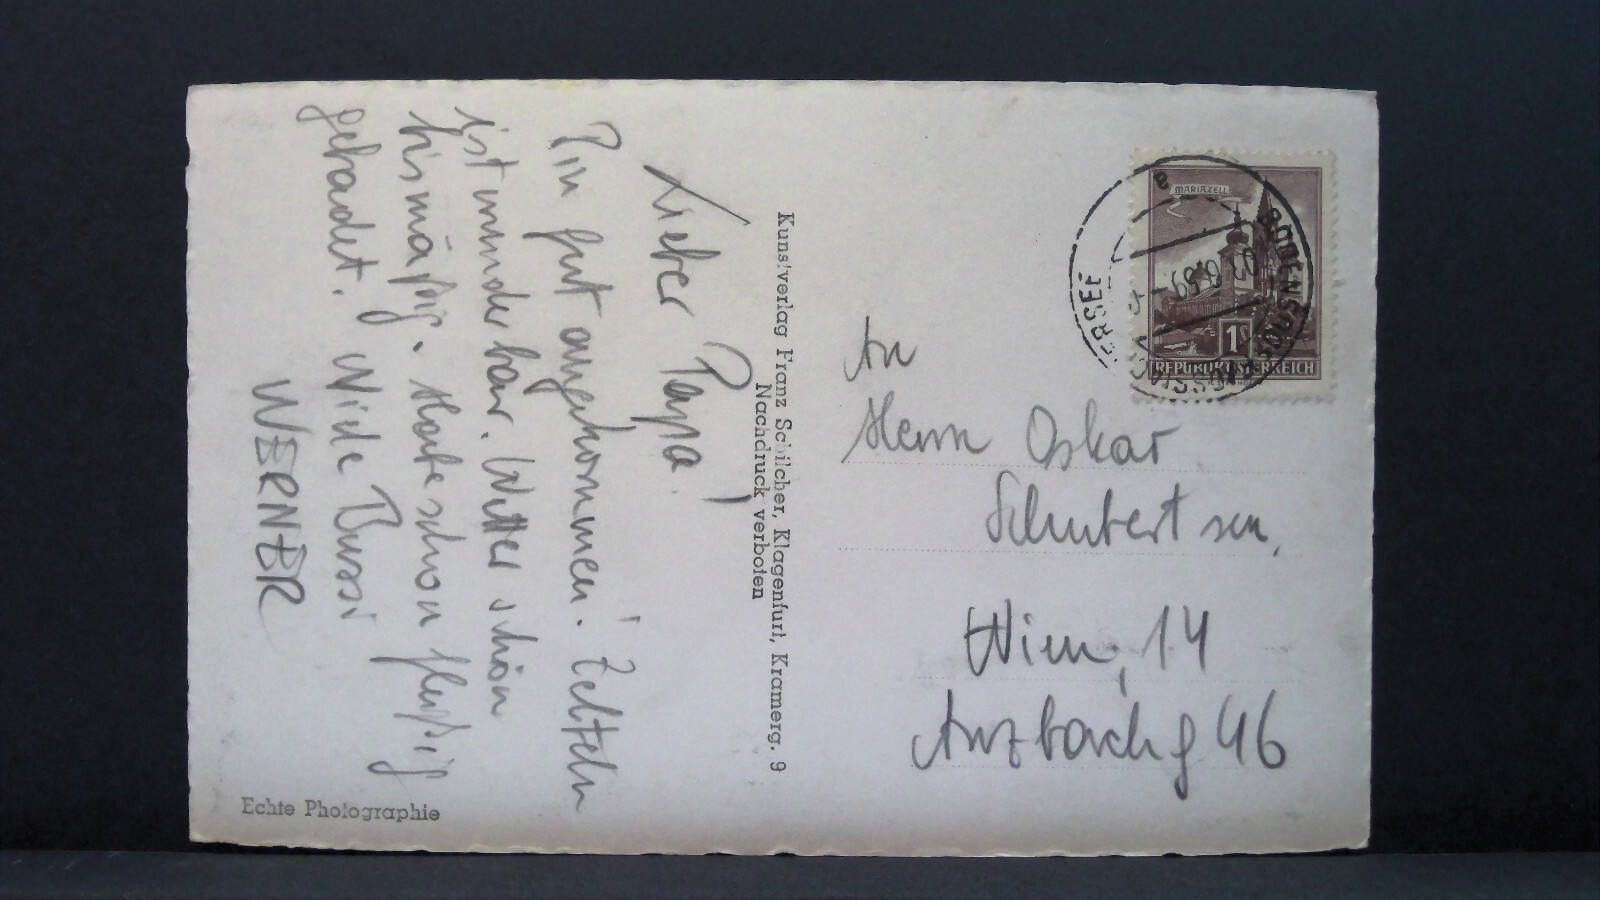 Lieber Papa!
Bin gut angekommen. Zelteln
ist wunderbar. Wetter schön
bismäßig. Habe schon fleißig
gebadet. Viele Bussi
WERNER
Kunstverlag Franz Schilcher, Klagenfurt, Kramerg. 9
Nachdruck verboten
Echte Photographie
MARIAZELL
1S
REPUBLIK ÖSTERREICH
BODENSDORF
03.6.59
An
Herrn Oskar
Schubert sen.
Wien, 14
Anzbachg 46